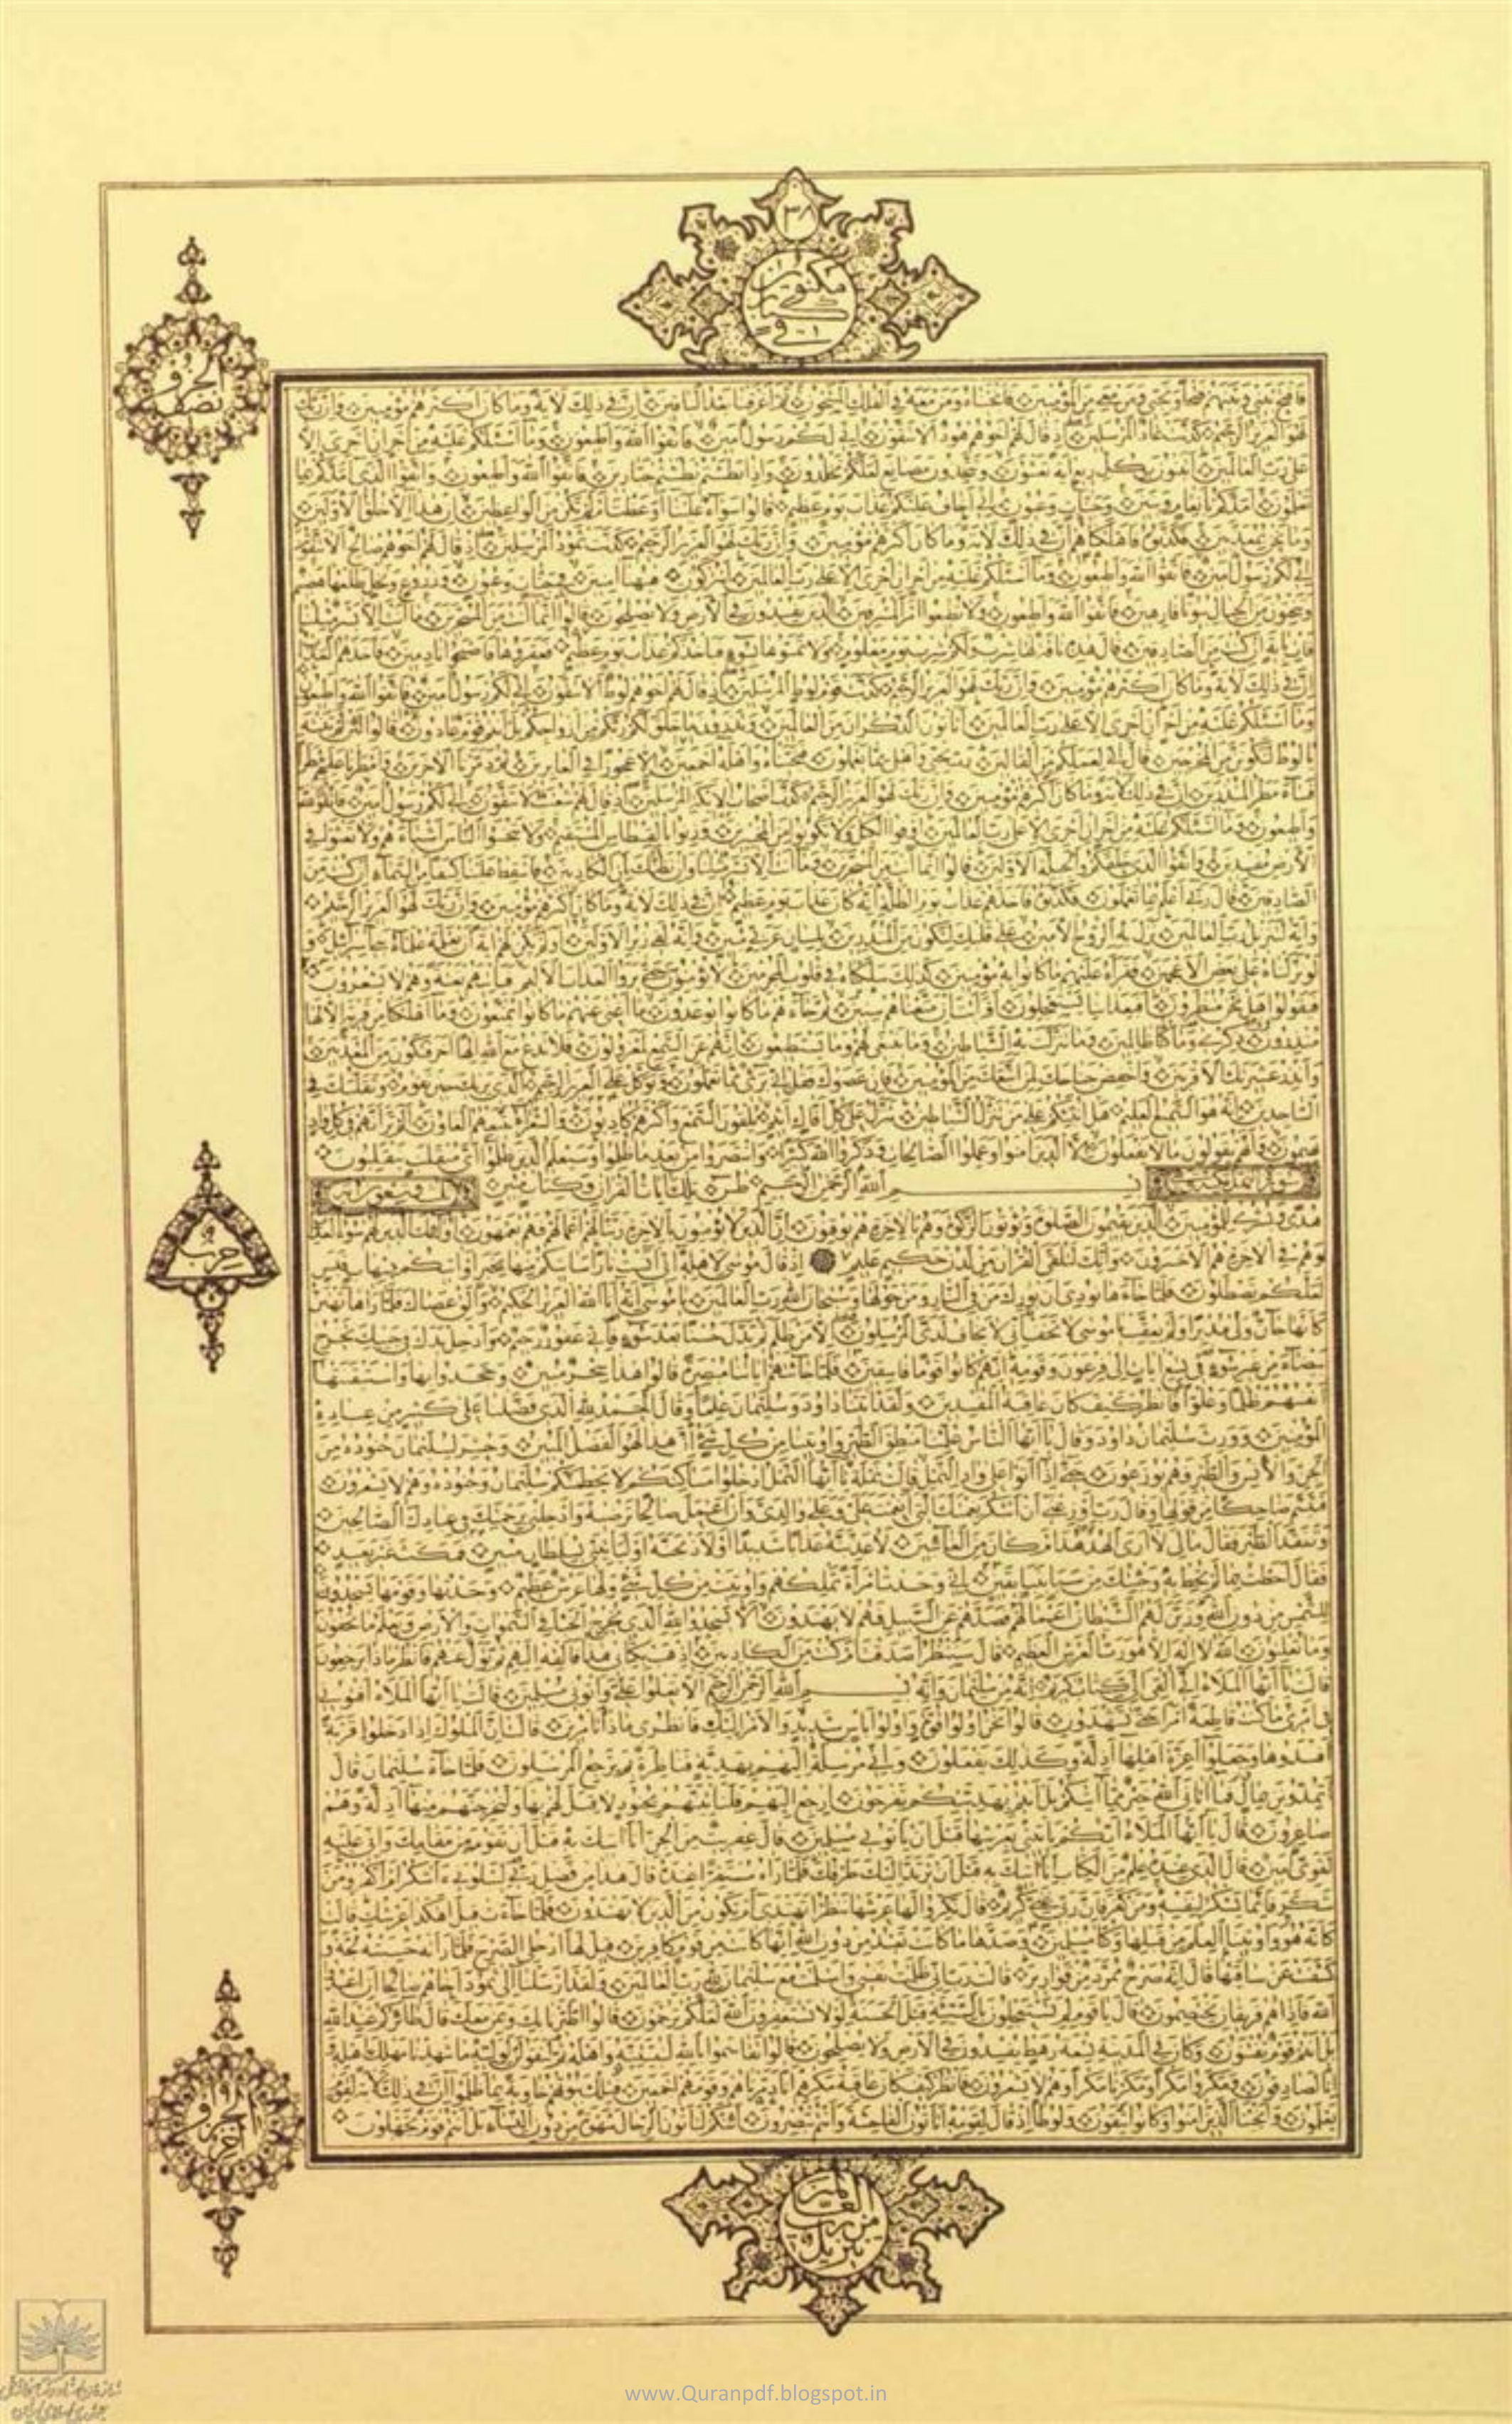 ٣٨
مكنون
نصف
الحزب
فافتح بيني وبينهم فتحا ونجني ومن معي من المؤمنين فانجيناه ومن معه في الفلك المشحون ثم اغرقنا بعد الباقين ان في ذلك لاية وما كان اكثرهم مؤمنين وان ربك
لهو العزيز الرحيم كذبت عاد المرسلين اذ قال لهم اخوهم هود الا تتقون اني لكم رسول امين فاتقوا الله واطيعون وما اسئلكم عليه من اجر ان اجري الا
على رب العالمين اتبنون بكل ريع اية تعبثون وتتخذون مصانع لعلكم تخلدون واذا بطشتم بطشتم جبارين فاتقوا الله واطيعون واتقوا الذي امدكم بما
تعلمون امدكم بانعام وبنين وجنات وعيون اني اخاف عليكم عذاب يوم عظيم قالوا سواء علينا اوعظت ام لم تكن من الواعظين ان هذا الا خلق الاولين
وما نحن بمعذبين فكذبوه فاهلكناهم ان في ذلك لاية وما كان اكثرهم مؤمنين وان ربك لهو العزيز الرحيم كذبت ثمود المرسلين اذ قال لهم اخوهم صالح الا تتقون
اني لكم رسول امين فاتقوا الله واطيعون وما اسئلكم عليه من اجر ان اجري الا على رب العالمين اتتركون في ما هيهنا امنين في جنات وعيون وزروع ونخل طلعها هضيم
وتنحتون من الجبال بيوتا فارهين فاتقوا الله واطيعون ولا تطيعوا امر المسرفين الذين يفسدون في الارض ولا يصلحون قالوا انما انت من المسحرين ما انت الا بشر مثلنا
فات باية ان كنت من الصادقين قال هذه ناقة لها شرب ولكم شرب يوم معلوم ولا تمسوها بسوء فياخذكم عذاب يوم عظيم فعقروها فاصبحوا نادمين فاخذهم العذاب
ان في ذلك لاية وما كان اكثرهم مؤمنين وان ربك لهو العزيز الرحيم كذبت قوم لوط المرسلين اذ قال لهم اخوهم لوط الا تتقون اني لكم رسول امين فاتقوا الله واطيعون
وما اسئلكم عليه من اجر ان اجري الا على رب العالمين اتاتون الذكران من العالمين وتذرون ما خلق لكم ربكم من ازواجكم بل انتم قوم عادون قالوا لئن لم تنته
يا لوط لتكونن من المخرجين قال اني لعملكم من القالين رب نجني واهلي مما يعملون فنجيناه واهله اجمعين الا عجوزا في الغابرين ثم دمرنا الاخرين وامطرنا عليهم مطرا
فساء مطر المنذرين ان في ذلك لاية وما كان اكثرهم مؤمنين وان ربك لهو العزيز الرحيم كذب اصحاب الايكة المرسلين اذ قال لهم شعيب الا تتقون اني لكم رسول امين فاتقوا الله
واطيعون وما اسئلكم عليه من اجر ان اجري الا على رب العالمين اوفوا الكيل ولا تكونوا من المخسرين وزنوا بالقسطاس المستقيم ولا تبخسوا الناس اشياءهم ولا تعثوا في
الارض مفسدين واتقوا الذي خلقكم والجبلة الاولين قالوا انما انت من المسحرين وما انت الا بشر مثلنا وان نظنك لمن الكاذبين فاسقط علينا كسفا من السماء ان كنت من
الصادقين قال ربي اعلم بما تعملون فكذبوه فاخذهم عذاب يوم الظلة انه كان عذاب يوم عظيم ان في ذلك لاية وما كان اكثرهم مؤمنين وان ربك لهو العزيز الرحيم
وانه لتنزيل رب العالمين نزل به الروح الامين على قلبك لتكون من المنذرين بلسان عربي مبين وانه لفي زبر الاولين اولم يكن لهم اية ان يعلمه علماء بني اسرائيل و
لو نزلناه على بعض الاعجمين فقراه عليهم ما كانوا به مؤمنين كذلك سلكناه في قلوب المجرمين لا يؤمنون به حتى يروا العذاب الاليم فياتيهم بغتة وهم لا يشعرون
فيقولوا هل نحن منظرون افبعذابنا يستعجلون افرايت ان متعناهم سنين ثم جاءهم ما كانوا يوعدون ما اغنى عنهم ما كانوا يمتعون وما اهلكنا من قرية الا لها
منذرون ذكرى وما كنا ظالمين وما تنزلت به الشياطين وما ينبغي لهم وما يستطيعون انهم عن السمع لمعزولون فلا تدع مع الله الها اخر فتكون من المعذبين
وانذر عشيرتك الاقربين واخفض جناحك لمن اتبعك من المؤمنين فان عصوك فقل اني بريء مما تعملون وتوكل على العزيز الرحيم الذي يريك حين تقوم وتقلبك في
الساجدين انه هو السميع العليم هل انبئكم على من تنزل الشياطين تنزل على كل افاك اثيم يلقون السمع واكثرهم كاذبون والشعراء يتبعهم الغاوون الم تر انهم في كل واد
يهيمون وانهم يقولون ما لا يفعلون الا الذين امنوا وعملوا الصالحات وذكروا الله كثيرا وانتصروا من بعد ما ظلموا وسيعلم الذين ظلموا اي منقلب ينقلبون
سورة النمل مكية بسم الله الرحمن الرحيم طس تلك ايات القران وكتاب مبين
حزب
هدى وبشرى للمؤمنين الذين يقيمون الصلوة ويؤتون الزكوة وهم بالاخرة هم يوقنون ان الذين لا يؤمنون بالاخرة زينا لهم اعمالهم فهم يعمهون اولئك الذين لهم سوء العذاب
وهم في الاخرة هم الاخسرون وانك لتلقى القران من لدن حكيم عليم اذ قال موسى لاهله اني انست نارا ساتيكم منها بخبر او اتيكم بشهاب قبس
لعلكم تصطلون فلما جاءها نودي ان بورك من في النار ومن حولها وسبحان الله رب العالمين يا موسى انه انا الله العزيز الحكيم والق عصاك فلما راها تهتز
كانها جان ولى مدبرا ولم يعقب يا موسى لا تخف اني لا يخاف لدي المرسلون الا من ظلم ثم بدل حسنا بعد سوء فاني غفور رحيم وادخل يدك في جيبك تخرج
بيضاء من غير سوء في تسع ايات الى فرعون وقومه انهم كانوا قوما فاسقين فلما جاءتهم اياتنا مبصرة قالوا هذا سحر مبين وجحدوا بها واستيقنتها
انفسهم ظلما وعلوا فانظر كيف كان عاقبة المفسدين ولقد اتينا داود وسليمان علما وقالا الحمد لله الذي فضلنا على كثير من عباده
المؤمنين وورث سليمان داود وقال يا ايها الناس علمنا منطق الطير واوتينا من كل شيء ان هذا لهو الفضل المبين وحشر لسليمان جنوده من
الجن والانس والطير فهم يوزعون حتى اذا اتوا على واد النمل قالت نملة يا ايها النمل ادخلوا مساكنكم لا يحطمنكم سليمان وجنوده وهم لا يشعرون
فتبسم ضاحكا من قولها وقال رب اوزعني ان اشكر نعمتك التي انعمت علي وعلى والدي وان اعمل صالحا ترضيه وادخلني برحمتك في عبادك الصالحين
وتفقد الطير فقال ما لي لا ارى الهدهد ام كان من الغائبين لاعذبنه عذابا شديدا او لاذبحنه او لياتيني بسلطان مبين فمكث غير بعيد
فقال احطت بما لم تحط به وجئتك من سبا بنبا يقين اني وجدت امراة تملكهم واوتيت من كل شيء ولها عرش عظيم وجدتها وقومها يسجدون
للشمس من دون الله وزين لهم الشيطان اعمالهم فصدهم عن السبيل فهم لا يهتدون الا يسجدوا لله الذي يخرج الخبء في السموات والارض ويعلم ما تخفون
وما تعلنون الله لا اله الا هو رب العرش العظيم قال سننظر اصدقت ام كنت من الكاذبين اذهب بكتابي هذا فالقه اليهم ثم تول عنهم فانظر ماذا يرجعون
قالت يا ايها الملاء اني القي الي كتاب كريم انه من سليمان وانه بسم الله الرحمن الرحيم الا تعلوا علي واتوني مسلمين قالت يا ايها الملاء افتوني
في امري ما كنت قاطعة امرا حتى تشهدون قالوا نحن اولوا قوة واولوا باس شديد والامر اليك فانظري ماذا تامرين قالت ان الملوك اذا دخلوا قرية
افسدوها وجعلوا اعزة اهلها اذلة وكذلك يفعلون واني مرسلة اليهم بهدية فناظرة بم يرجع المرسلون فلما جاء سليمان قال
اتمدونن بمال فما اتاني الله خير مما اتيكم بل انتم بهديتكم تفرحون ارجع اليهم فلناتينهم بجنود لا قبل لهم بها ولنخرجنهم منها اذلة وهم
صاغرون قال يا ايها الملاء ايكم ياتيني بعرشها قبل ان ياتوني مسلمين قال عفريت من الجن انا اتيك به قبل ان تقوم من مقامك واني عليه
لقوي امين قال الذي عنده علم من الكتاب انا اتيك به قبل ان يرتد اليك طرفك فلما راه مستقرا عنده قال هذا من فضل ربي ليبلوني ءاشكر ام اكفر ومن
شكر فانما يشكر لنفسه ومن كفر فان ربي غني كريم قال نكروا لها عرشها ننظر اتهتدي ام تكون من الذين لا يهتدون فلما جاءت قيل اهكذا عرشك قالت
كانه هو واوتينا العلم من قبلها وكنا مسلمين وصدها ما كانت تعبد من دون الله انها كانت من قوم كافرين قيل لها ادخلي الصرح فلما راته حسبته لجة و
كشفت عن ساقيها قال انه صرح ممرد من قوارير قالت رب اني ظلمت نفسي واسلمت مع سليمان لله رب العالمين ولقد ارسلنا الى ثمود اخاهم صالحا ان اعبدوا
الله فاذا هم فريقان يختصمون قال يا قوم لم تستعجلون بالسيئة قبل الحسنة لولا تستغفرون الله لعلكم ترحمون قالوا اطيرنا بك وبمن معك قال طائركم عند الله
بل انتم قوم تفتنون وكان في المدينة تسعة رهط يفسدون في الارض ولا يصلحون قالوا تقاسموا بالله لنبيتنه واهله ثم لنقولن لوليه ما شهدنا مهلك اهله و
انا لصادقون ومكروا مكرا ومكرنا مكرا وهم لا يشعرون فانظر كيف كان عاقبة مكرهم انا دمرناهم وقومهم اجمعين فتلك بيوتهم خاوية بما ظلموا ان في ذلك لاية لقوم
يعلمون وانجينا الذين امنوا وكانوا يتقون ولوطا اذ قال لقومه اتاتون الفاحشة وانتم تبصرون ائنكم لتاتون الرجال شهوة من دون النساء بل انتم قوم تجهلون
الحزب
تنزيل من رب العالمين
www.Quranpdf.blogspot.in